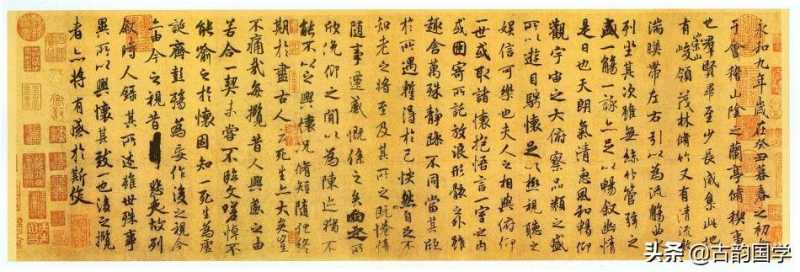 永和九年歲在癸丑暮春之初會
于會稽山陰之蘭亭脩稧事
也羣賢畢至少長咸集此地
崇山
有峻領茂林脩竹又有清流激
湍暎帶左右引以為流觴曲水
列坐其次雖無絲竹管弦之
盛一觴一詠亦足以暢敘幽情
是日也天朗氣清惠風和暢仰
觀宇宙之大俯察品類之盛
所以遊目騁懷足以極視聽之
娛信可樂也夫人之相與俯仰
一世或取諸懷抱悟言一室之內
或因寄所託放浪形骸之外雖
趣舍萬殊靜躁不同當其欣
於所遇暫得於己快然自足不
知老之將至及其所之既惓情
隨事遷感慨係之矣向之所
欣俛仰之間以為陳迹猶不
能不以之興懷況脩短隨化終
期於盡古人云死生亦大矣豈
不痛哉每攬昔人興感之由
若合一契未嘗不臨文嗟悼不
能喻之於懷固知一死生為虛
誕齊彭殤為妄作後之視今
亦由今之視昔悲夫故列
敘時人錄其所述雖世殊事
異所以興懷其致一也後之攬
者亦將有感於斯文
头条 @古韵国学